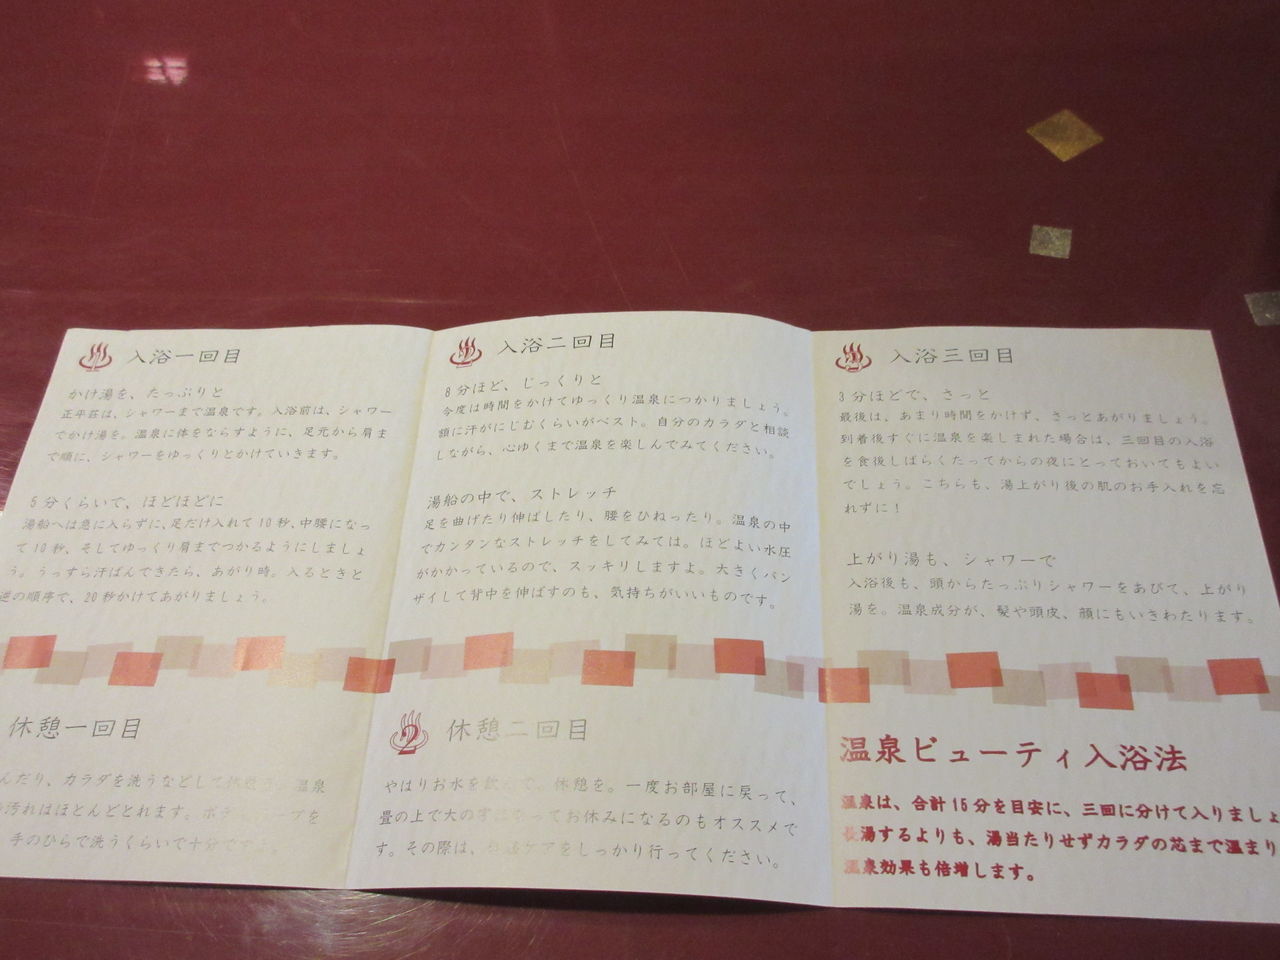 入浴一回目
かけ湯を、たっぷりと
正平荘は、シャワーまで温泉です。入浴前は、シャワー
でかけ湯を。温泉に体をならすように、足元から肩ま
で順に、シャワーをゆっくりとかけていきます。
5分くらいで、ほどほどに
湯船へは急に入らずに、足だけ入れて10秒、中腰になっ
て10秒、そしてゆっくり肩までつかるようにしましょ
う。うっすら汗ばんできたら、あがり時。入るときと
逆の順序で、20秒かけてあがりましょう。
休憩一回目
んだり、カラダを洗うなどして休憩を。温泉
汚れはほとんどとれます。ボディソープを
手のひらで洗うくらいで十分ですよ。
2 入浴二回目
8分ほど、じっくりと
今度は時間をかけてゆっくり温泉につかりましょう。
額に汗がにじむくらいがベスト。自分のカラダと相談
しながら、心ゆくまで温泉を楽しんでみてください。
湯船の中で、ストレッチ
足を曲げたり伸ばしたり、腰をひねったり。温泉の中
でカンタンなストレッチをしてみては。ほどよい水圧
がかかっているので、スッキリしますよ。大きくバン
ザイして背中を伸ばすのも、気持ちがいいものです。
2 休憩二回目
やはりお水を飲んで、休憩を。一度お部屋に戻って、
畳の上で大の字になってお休みになるのもオススメで
す。その際は、ケアをしっかり行ってください。
3 入浴三回目
3分ほどで、さっと
最後は、あまり時間をかけず、さっとあがりましょう。
到着後すぐに温泉を楽しまれた場合は、三回目の入浴
を食後しばらくたってからの夜にとっておいてもよい
でしょう。こちらも、湯上がり後の肌のお手入れを忘
れずに!
上がり湯も、シャワーで
入浴後も、頭からたっぷりシャワーをあびて、上がり
湯を。温泉成分が、髪や頭皮、顔にもいきわたります。
温泉ビューティ入浴法
温泉は、合計15分を目安に、三回に分けて入りましょ
長湯するよりも、湯当たりせずカラダの芯まで温まり
温泉効果も倍増します。